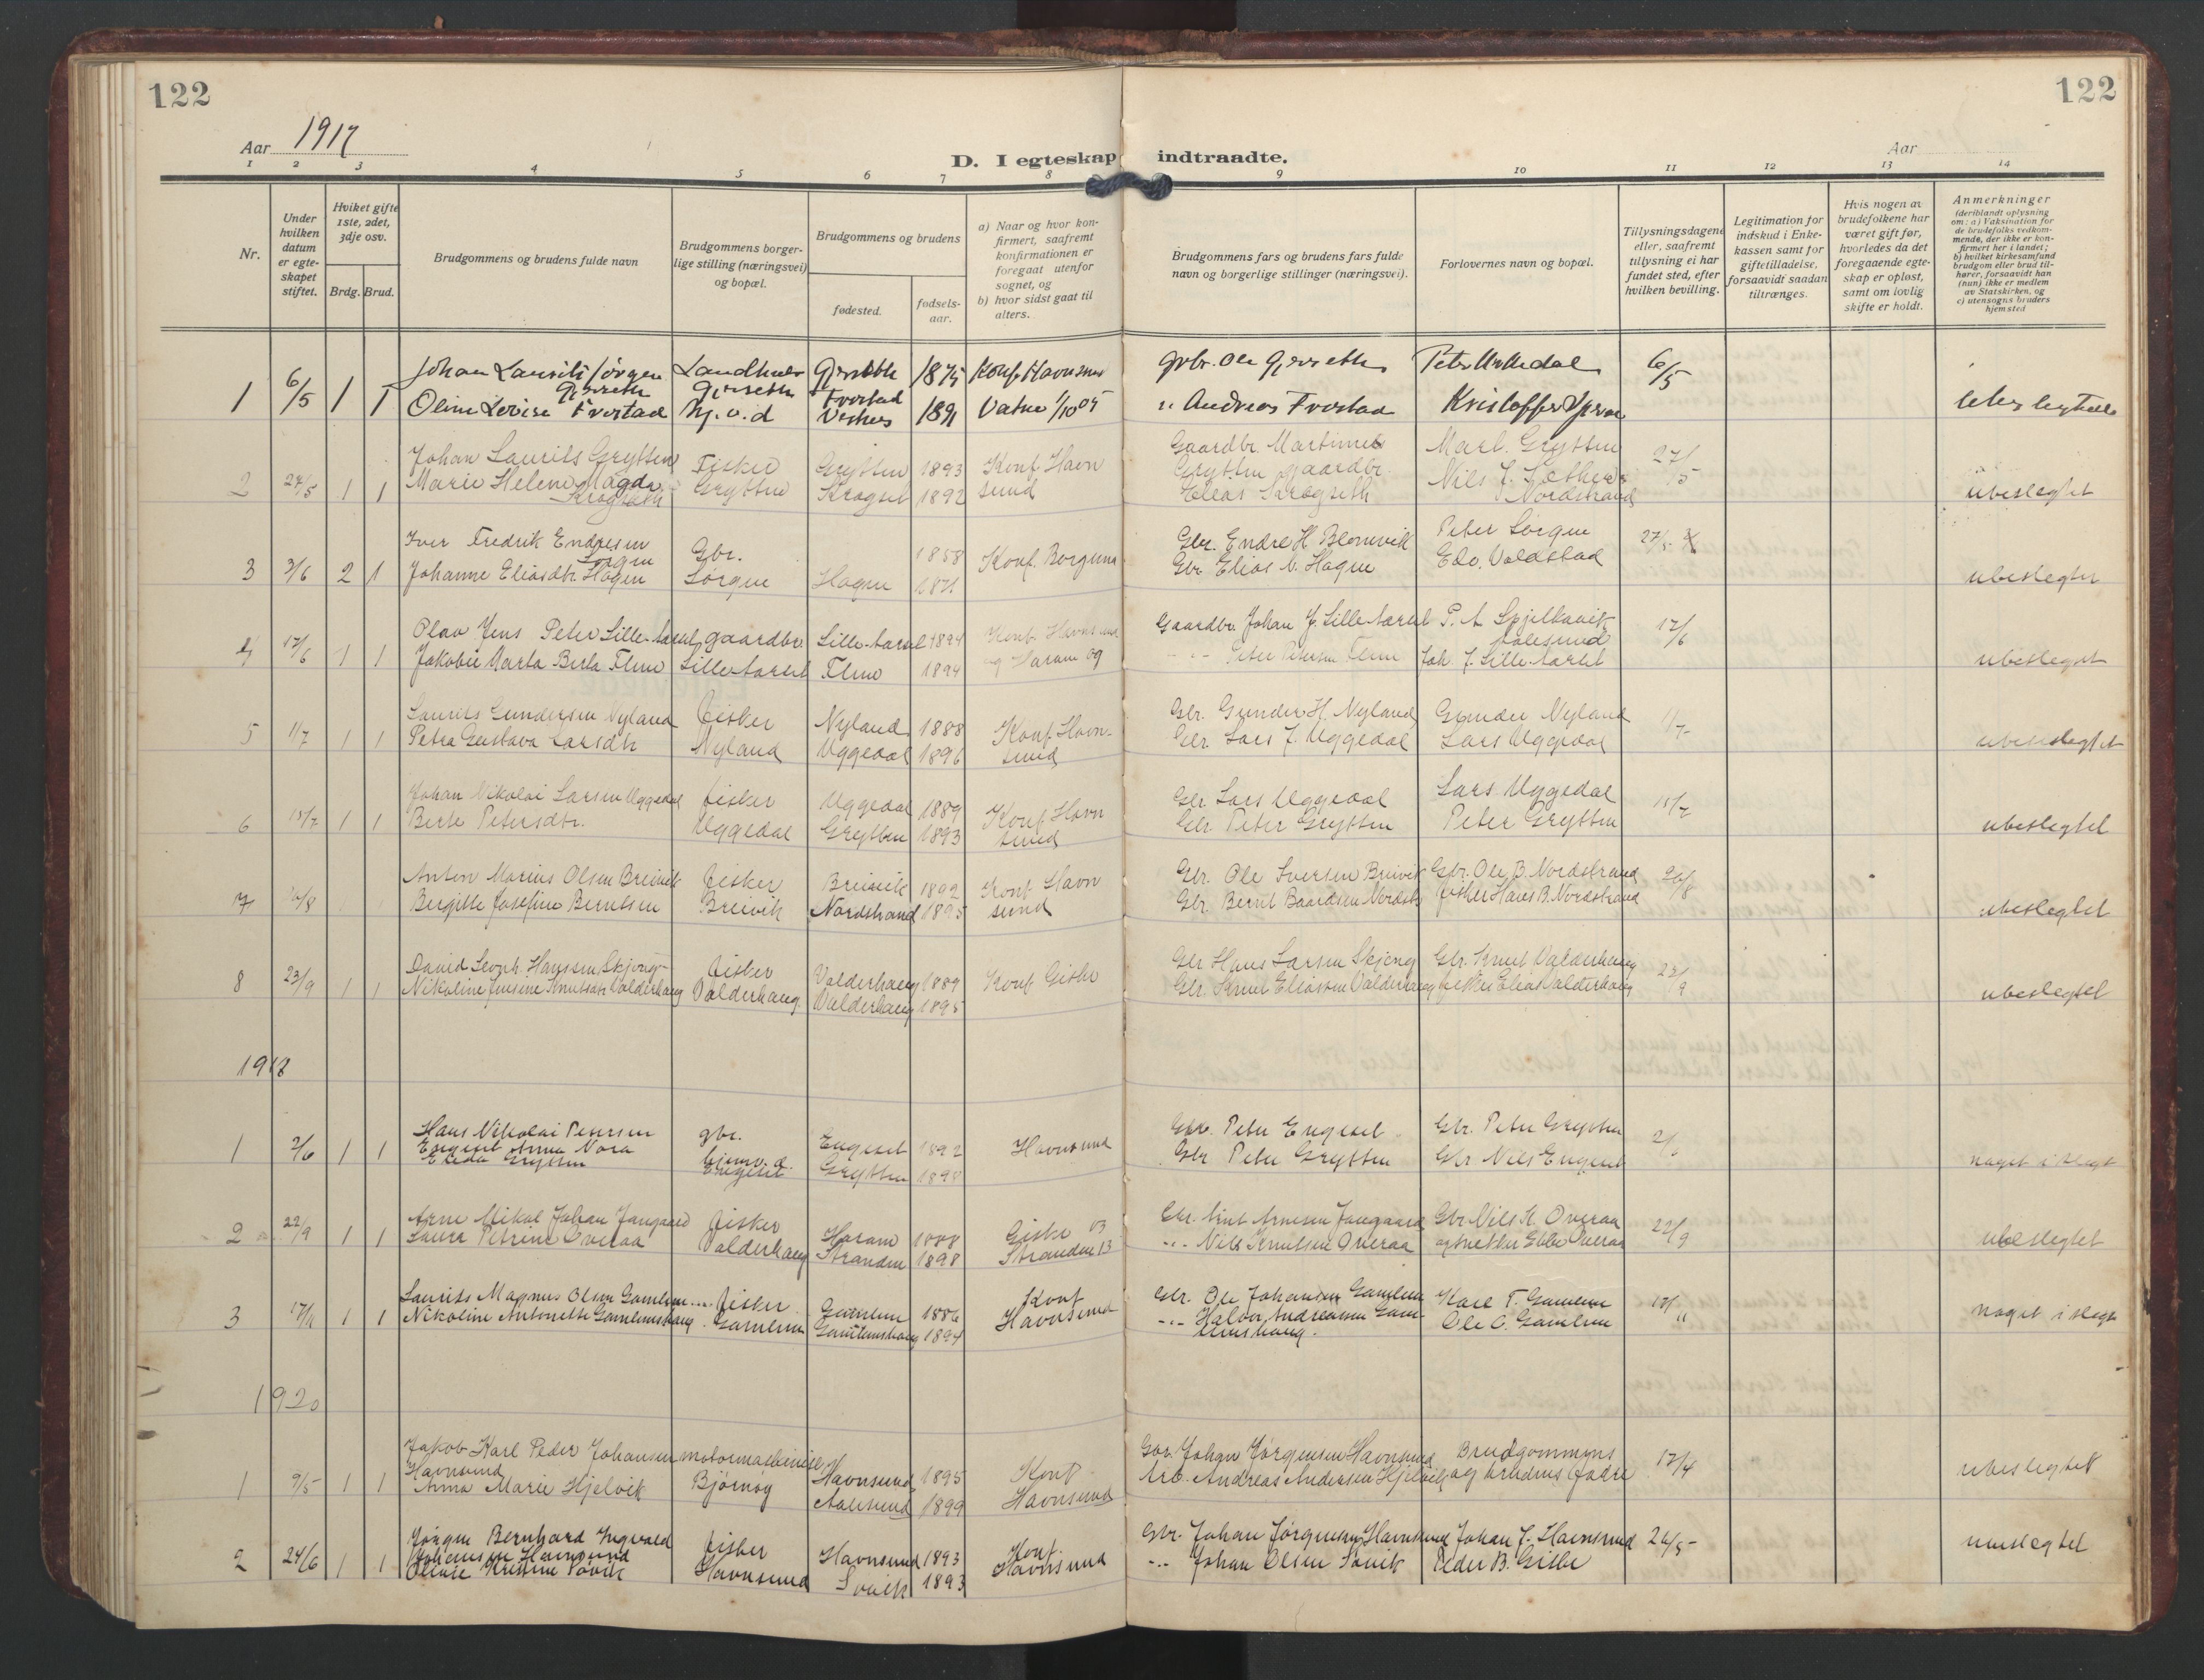 122
122
Aar 1917
Aar
D. I egteskap indtraadte.
1 2 3 4 5 6 7 8 9 10 11 12 13 14
Nr.
Under hvilken datum er egteskapet stiftet.
Hviket gifte 1ste, 2det, 3dje osv.
Brdg. Brud.
Brudgommens og brudens fulde navn
Brudgommens borgerlige stilling (næringsvei) og bopæl.
Brudgommens og brudens
fødested.
fødselsaar.
a) Naar og hvor konfirmert, saafremt konfirmationen er foregaat utenfor sognet, og
b) hvor sidst gaat til alters.
Brudgommens fars og brudens fars fulde navn og borgerlige stillinger (næringsvei).
Forlovernes navn og bopæl.
Tillysningsdagene eller, saafremt tillysning ei har fundet sted, efter hvilken bevilling.
Legitimation for indskud i Enkekassen samt for giftetilladelse, forsaavidt saadan tiltrænges.
Hvis nogen av brudefolkene har været gift før, hvorledes da det foregaaende egteskap er opløst, samt om lovlig skifte er holdt.
Anmerkninger
(deriblandt oplysning om: a) Vaksination for de brudefolks vedkommende, der ikke er konfirmert her i landet; b) hvilket kirkesamfund brudgom eller brud tilhører, forsaavidt han (hun) ikke er medlem av Statskirken, og c) utensogns bruders hjemsted
1 6/5 1 1 Johan Gjerseth 1875 Konf. Havnsund Gbr. Ole Gjerseth 6/5
Oline Lovise Frostad 1891 Vatne 1/10 05 " Andreas Frostad Kristoffer
2 27/5 1 1 Johan Laurits Grytten Fisker Grytten 1893 Konf. Havn Gaardbr. Martinus Mart. Grytten 27/5
Marie Helene Magda Krogseth Grytten Krogset 1892 sund Gryttn gaardbr. Elias Krogseth Nils J. Nordstrand ubeslegtet
3 3/6 2 1 Iver Fredrik Endresen Sørgen Gbr. 1858 Konf. Borgund Gbr. Endre H. Blomvik Peter Sørgen 27/5
Johanne Eliasdtr. Hagen Sørgen Hagen 1871 Gbr Elias Hagen Edv. Valdstad ubeslegtet
4 17/6 1 1 Olav Jens Peter Lille-Aarset gaardbr. Lille-Aarset 1894 Konf. Havnsund Gaardbr. Johan J. Lille-Aarset P. A. Spjelkavik Aalesund 17/6
Jakobie Marta Berta Flem Lille-Aarset Flem 1894 og Haram 09 -"- Peter Petersen Flem Joh. J. Lille-Aarset ubeslegtet
5 1/7 1 1 Laurits Gundersen Nyland Fisker Nyland 1888 Konf. Havn- Gbr. Gunder H. Nyland Gunder Nyland 1/7
Petra Gustava Larsdtr Nyland Uggedal 1896 sund Gbr. Lars J. Uggedal Lars Uggedal ubeslegtet
6 15/7 1 1 Johan Nikolai Larsen Uggedal Fisker Uggedal 1889 Konf. Havn Gbr Lars Uggedal Lars Uggedal 15/7
Berte Petersdtr. Uggedal Grytten 1893 sund Gbr. Peter Gryttn Peter Gryttn ubeslegtet
7 26/8 1 1 Anton Marius Olsen Breivik Fisker Breivik 1892 Konf. Havn Gbr. Ole Iversen Breivik Gbr. Ole B. Nordstrand 26/8
Bergitte Josefine Berntsen Breivik Nordstrand 1895 sund Gbr. Bernt Baardsen Nordstr. fisker Hans B. Nordstrand ubeslegtet
8 23/9 1 1 David Leonh. Hanssen Skjong Fisker Valderhaug 1889 Konf. Giske Gbr Hans Larsen Skjong Gbr. Knut Valderhaug 23/9
Nikoline Jensine Knutsdtr Valderhaug Valderhaug Valderhaug 1895 Gbr. Knut Eliassen Valderhaug fisker Elias Valderhaug ubeslegtet
1918
1 2/6 1 1 Hans Nikolai Petersen Engeset gbr. Engeset 1892 Havnsund Gbr. Peter Engeset Gbr. Peter Gryttn 2/6
Anna Nora Elida Gryttn hjemv. d. Engeset Gryttn 1898 Gbr Peter Gryttn Gbr Nils Engeset noget i slegt
2 22/9 1 1 Arne Mikal Johan Jangaard Fisker Haram 1888 Giske 03 Gbr. Knut Arnesen Jangaard Gbr Nils K. Overaa 22/9
Laura Petrine Overaa Valderhaug Stranden 1898 Stranden 13 -"- Nils Knutsen Overaa Ebbe Overaa ubeslegtet
3 17/11 1 1 Laurits Magnus Olsen Gamlem Fisker Gamlem 1886 Konf Gbr. Ole Johansen Gamlem Karl T. Gamlem 17/11
Nikoline Antonette Gamlemshaug Gamlem Gamlemshaug 1894 Havnsund -"- Halvor Andreassen Gamlemshaug. Ole O. Gamlem noget i slegt
1920
1 9/5 1 1 Jakob Karl Peder Johansen Havnsund motormaskinist Havnsund 1895 Konf. Gbr. Johan Jørgensen Havnsund Brudgommens 17/4
Anna Marie Hjelvik Bjørnøy Aalesund 1899 Havnsund Arb. Andreas Andersen Hjelvik og brudens fædre ubeslegtet
2 24/6 1 1 Jørgen Bernhard Ingvald Johansen Havnsund Fisker Havnsund 1893 Konf. Gbr. Johan Jørgensen Havnsund Johan J. Havnsund 26/5
Olivie Kristine Søvik Havnsund Søvik 1893 Havnsund -"- Johan Olsen Søvik Peder B. Giske ubeslegtet